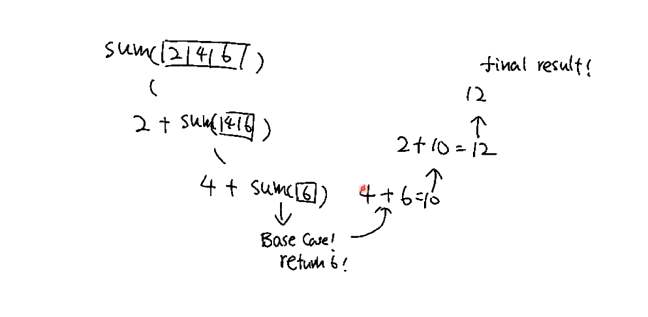 sum(|2|4|6|)
2 + sum(|4|6|)
4 + sum(|6|)
Base Case!
return 6!
4 + 6 = 10
2 + 10 = 12
12
final result!